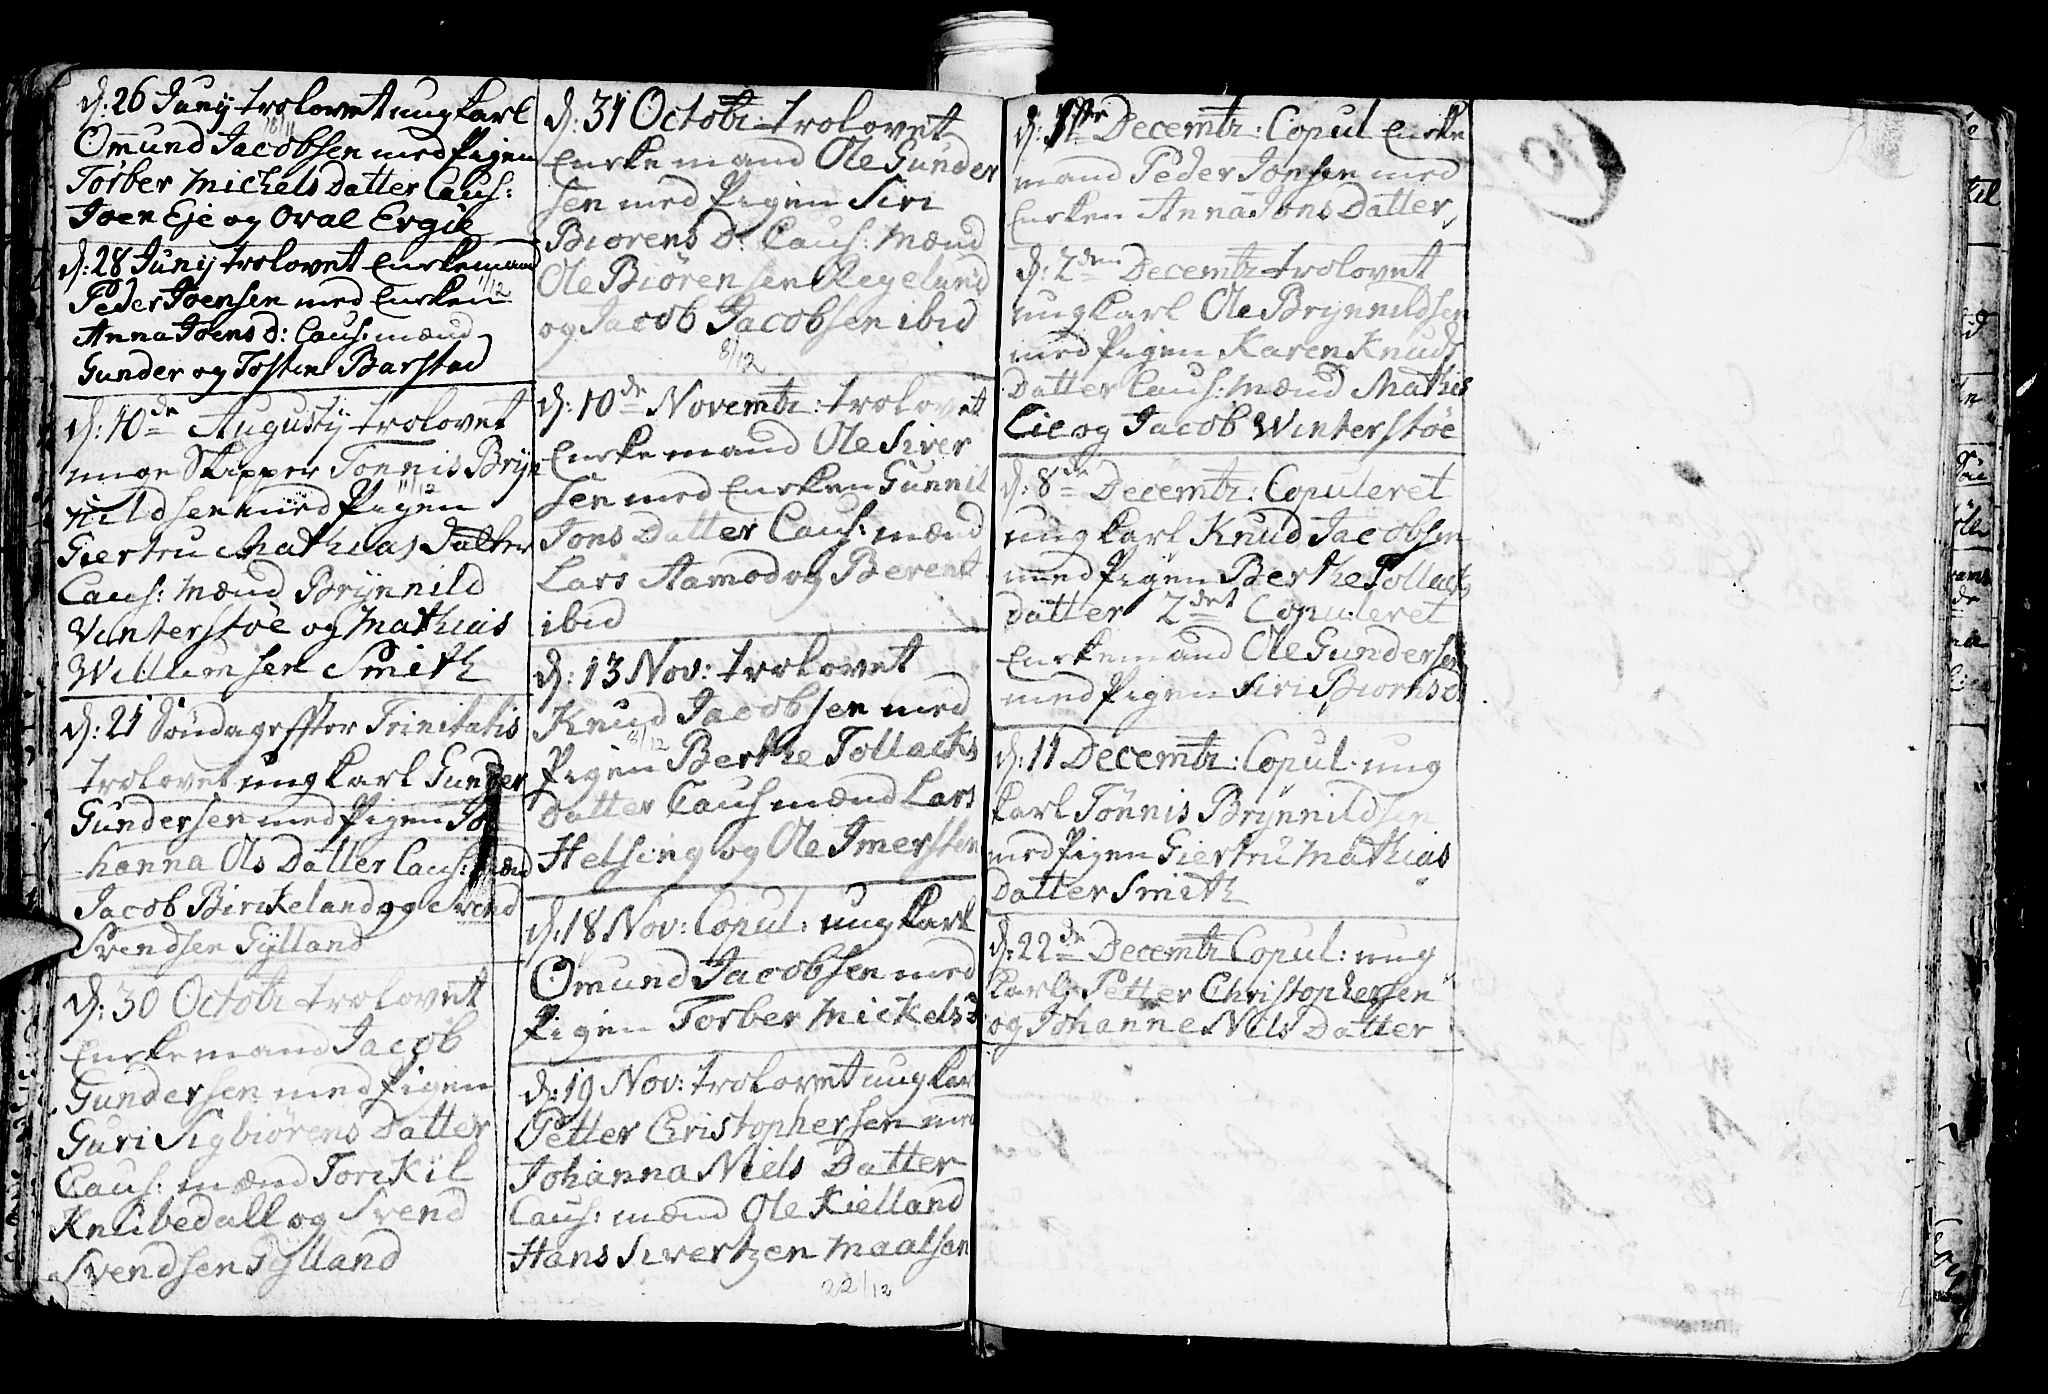 d: 26 Junij trolovet ungkarl
18/11
Omund Jacobsen med Pigen
Torber Michels Datter Caus:
Joen Eje og Oval Ergie
d: 28 Junij trolovet Enkemand
1/12
Peder Joensen med Enken
Anna Joens d: Caus: mænd
Gunder og Tosten Barstad
d: 10de Augustij trolovet
unge Skipper Tönnis Bryn
11/12
nildsen med Pigen
Giertru Mathias Datter
Caus: mænd Brynnild
Vinterstöe og Mathias
Willumsen Smith
d: 21 Söndag effter Trinitatis
trolovet ungkarl Gunder
Gundersen med Pigen Jo
hanna Ols Datter Caus: mænd
Jacob Birckeland og Svend
Svendsen Gylland
d: 30 Octobr trolovet
Enkemand Jacob
Gundersen med Pigen
Guri Sigbiörens Datter
Caus: mænd Torckil
Knibedall og Svend
Svendsen Gylland
d: 31 Octobr: trolovet
Enkemand Ole Gunder
sen med Pigen Siri
Biorens D: Caus: Mænd
Ole Biörensen Regeland
og Jacob Jacobsen ibid
8/12
d: 10de Novembr: trolovet
Enkemand Ole Siver
sen med Enken Gunnil
Jons Datter Caus: mænd
Lars Aamod og Berent
ibid
d: 13 Nov: trolovet
Knud Jacobsen med
8/12
Pigen Berthe Tollacks
Datter Caus mænd Lars
Helsing og Ole Imersten
d: 18 Nov: Copul: ungkarl
Omund Jacobsen med
Pigen Torber Mickels d
d: 19 Nov: trolovet ungkarl
Petter Christophersen med
Johanna Niels Datter
Caus: mænd Ole Kielland
Hans Sivertzen Maalsan
22/12
d: 1ste Decembr: Copul Enke
mand Peder Jonsen med
Enken Anna Jons Datter
d: 2den Decembr trolovet
ungkarl Ole Brynnildsen
med Pigen Karen Knuds
Datter Caus: mænd Mathis
Lie og Jacob Winterstöe
d: 8de Decembr: Copuleret
ungkarl Knud Jacobsen
med Pigen Berthe Tollacks
Datter 2det Copuleret
Enkemand Ole Gundersen
med Pigen Siri Biorns d
d: 11 Decembr: Copul. ung
karl Tönnis Brynnildsen
med Pigen Giertru Mathias
Datter Smith
d: 22de Decembr Copul: ung
karl Petter Christophersen
og Johanne Nels Datter